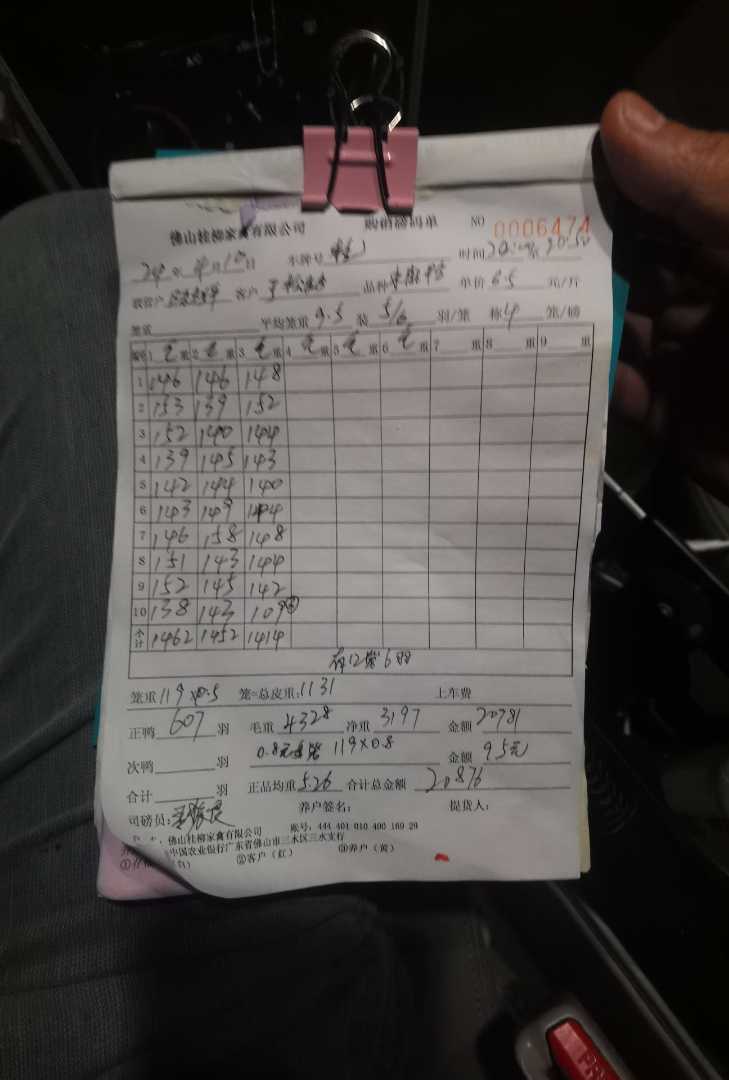 佛山桂柳家禽有限公司 购销磅码单 NO 0006474
24年4月10日 车牌号 时间
客户 品种 单价 6.5 元/斤
笼重 平均笼重 9.5 装 5/6 羽/笼 称 4 笼/磅
编号 1 毛重 2 毛重 3 毛重 4 毛重 5 毛重 6 毛重 7 重 8 重 9 重
1 146 146 148
2 153 139 152
3 152 140 144
4 139 145 143
5 142 144 140
6 143 149 144
7 146 158 148
8 151 143 144
9 152 145 142
10 138 143 109③
合计 1462 1452 1414
有12笼6羽
笼重 119×9.5 笼=总皮重: 1131 上车费
正鸭 607 羽 毛重 4328 净重 3197 金额 20781
次鸭 羽 0.8元每笼 119×0.8 金额 95元
合计 羽 正品均重 5.26 合计总金额 20876
司磅员: 养户签名: 提货人:
佛山桂柳家禽有限公司 账号: 444 401 010 400 169 29
中国农业银行广东省佛山市三水区三水支行
①存 (白) ②客户 (红) ③养户 (黄)